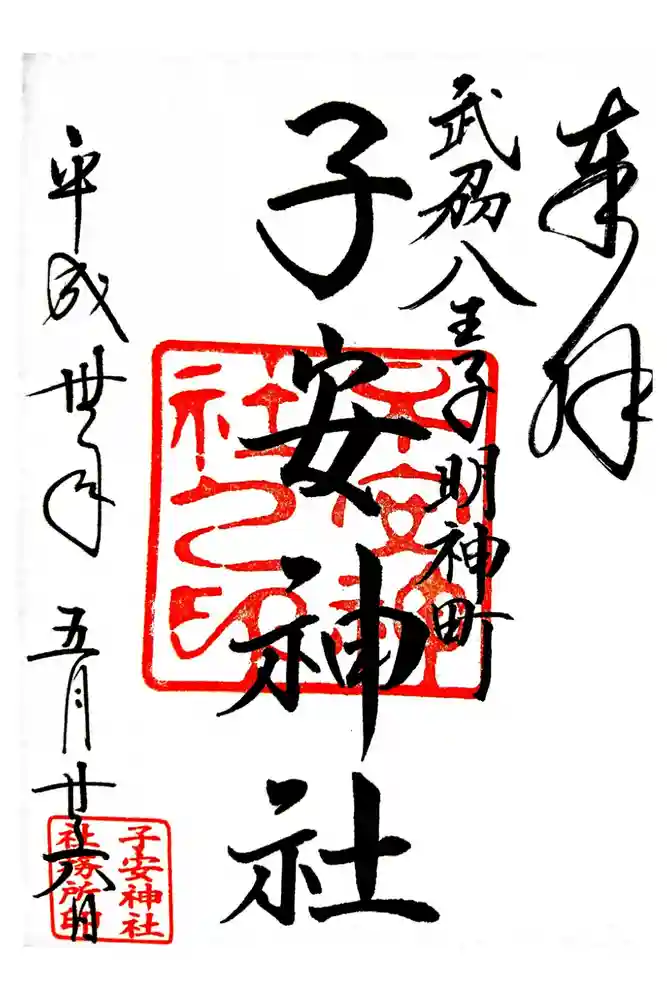 奉拝
武州八王子明神町
子安神社
平成卅年
五月廿六日
子安神社之印
子安神社
社務所印